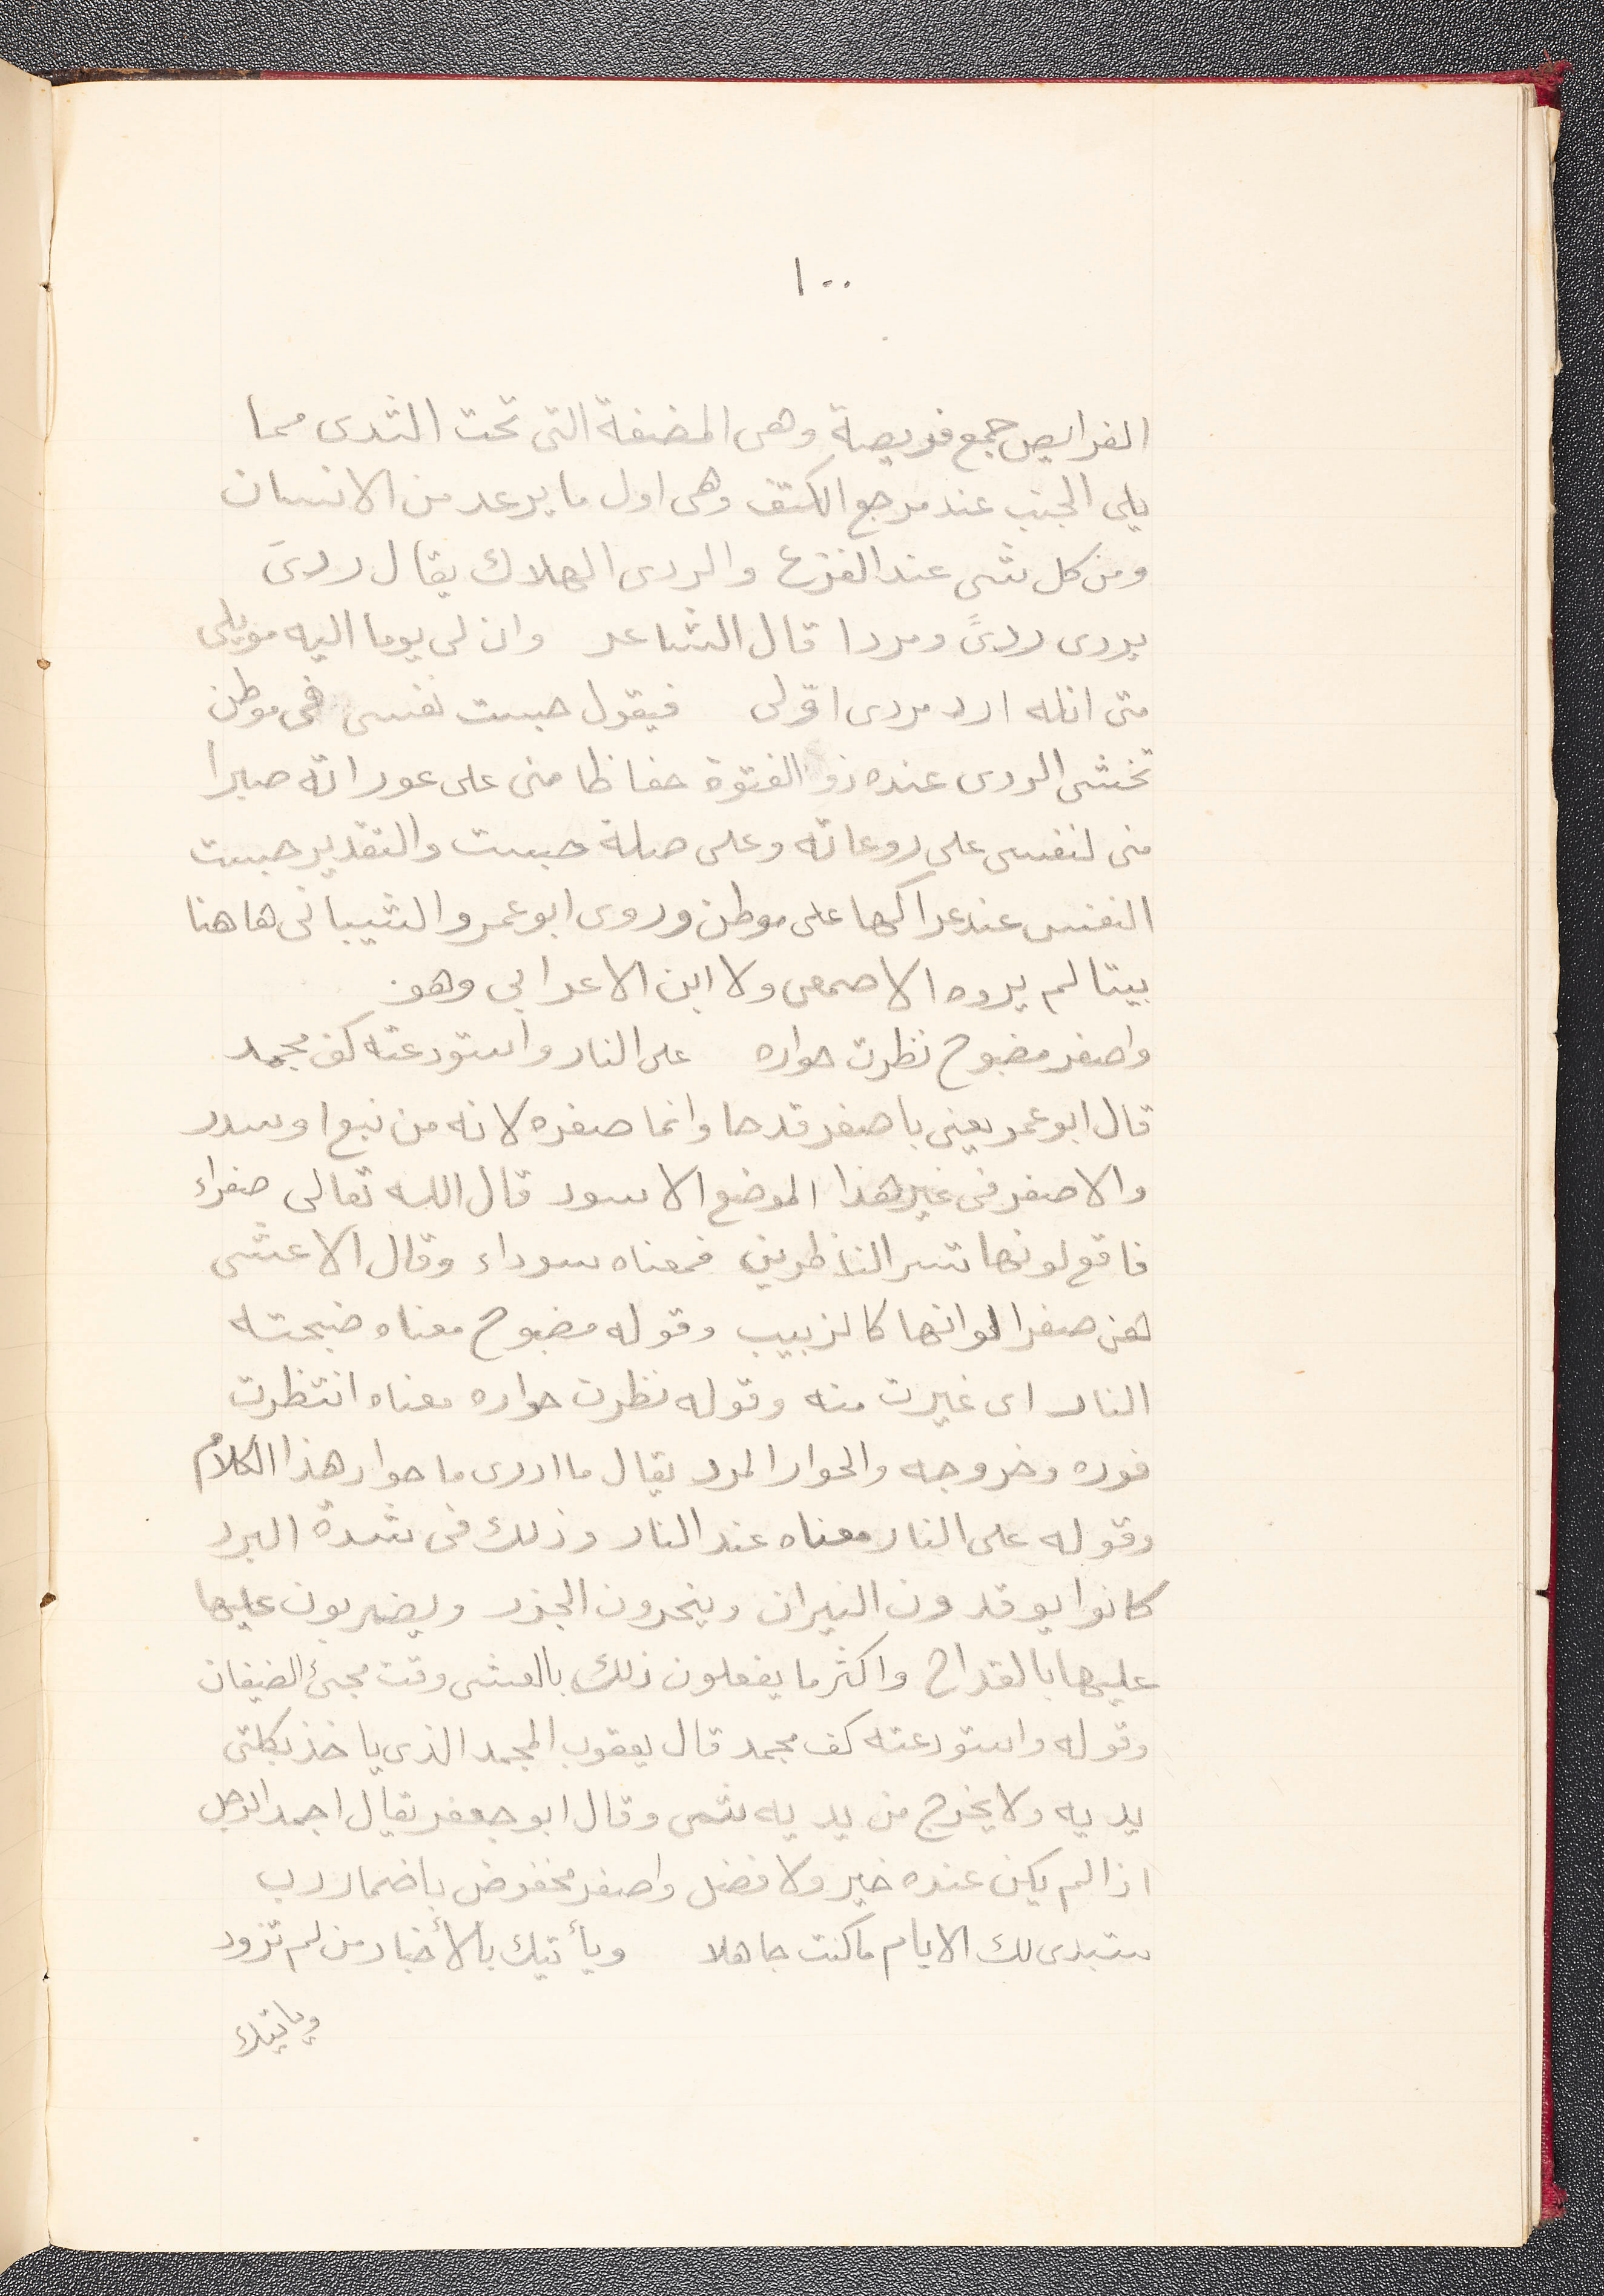 ١٠٠
الفرايص جمع فريصة وهى المضغة التى تحت الثدى مما
يلى الجنب عند مرجع الكتف وهى اول ما يرعد من الانسان
ومن كل شى عند الفزع والردى الهلاك يقال ردىَ
يردى ردىً ومردا قال الشاعر وان لى يوما اليه مويلى
متى انله ارد مردى اوّلى فيقول حبست نفسى فى موطن
تخشى الردى عنده ذو الفتوة حفاظا منى على عوراته صبرا
منى لنفسى على روعاته وعلى صلة حبست والتقدير حبست
النفس عند عراكها على موطن وروى ابو عمرو الشيبانى هاهنا
بيتا لم يروه الاصمعى ولا ابن الاعرابي وهو
واصفر مضبوح نظرت حواره على النار واستودعته كف مجمد
قال ابو عمر يعنى باصفر قدحا وانما صفره لانه من نبع او سدر
والاصفر فى غير هذا الموضع الاسود قال الله تعالى صفراء
فاقع لونها تسر الناظرين فمعناه سوداء وقال الاعشى
هن صفر الوانها كالزبيب وقوله مضبوح معناه ضبحته
النار اى غيرت منه وقوله نظرت حواره معناه انتظرت
فوره وخروجه والحوار المرد يقال ما ادرى ما حوار هذا الكلام
وقوله على النار معناه عند النار وذلك فى شدة البرد
كانوا يوقدون النيران وينحرون الجزر ويضربون عليها
عليها بالقداح واكثر ما يفعلون ذلك بالعشى وقت مجىئ الضيفان
وقوله واستودعته كف مجمد قال يعقوب المجمد الذى ياخذ بكلتى
يديه ولا يخرج من يديه شى وقال ابو جعفر يقال اجمد الرجل
اذا لم يكن عنده خير ولا فضل واصفر مخفوض باضمار رب
ستبدى لك الايام ما كنت جاهلا ويأتيك بالأخبار من لم تزود
وياتيك